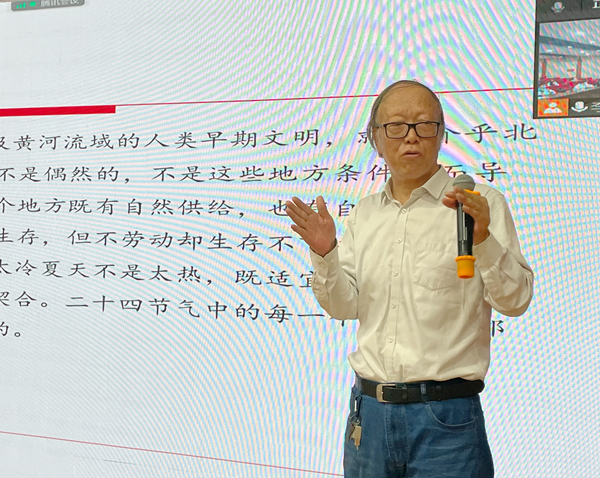 腾讯会议
及黄河流域的人类早期文明，
个乎北
不是偶然的，不是这些地方条件
导
个地方既有自然供给，也
自
生存，但不劳动却生存不
太冷夏天不是太热，既适宜
契合。二十四节气中的每一个
的。